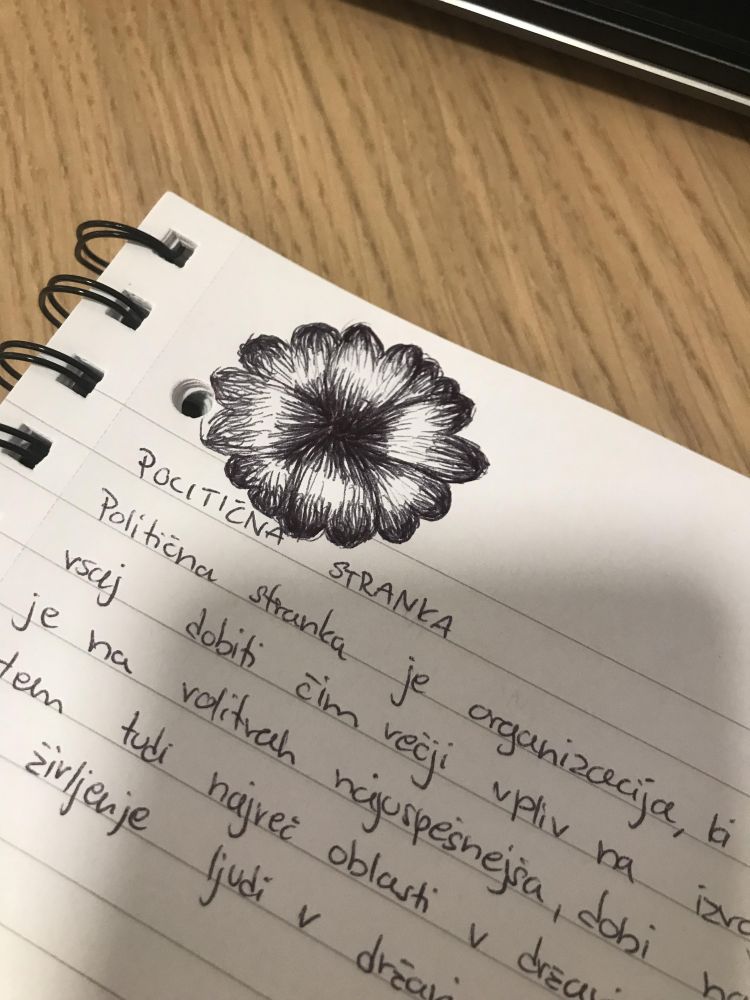 POLITIČNA STRANKA
Politična stranka je organizacija, ki
vsaj dobiti čim večji vpliv na
je na volitvah najuspešnejša, dobi
tem tudi največ oblasti v
življenje ljudi v